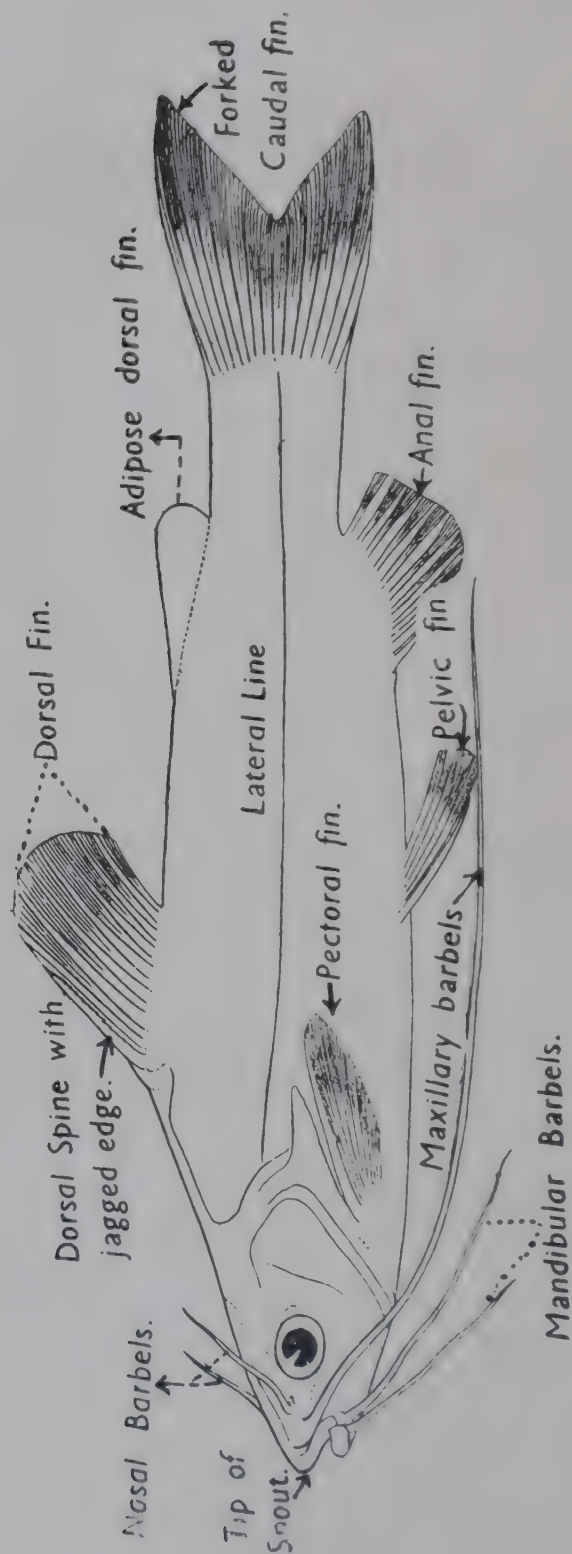 Nasal Barbels.
Tip of
Snout.
Dorsal Spine with
jagged edge.
Dorsal Fin.
Adipose dorsal fin.
Forked
Caudal fin.
Lateral Line
Pectoral fin.
Pelvic fin
Anal fin.
Maxillary barbels
Mandibular Barbels.